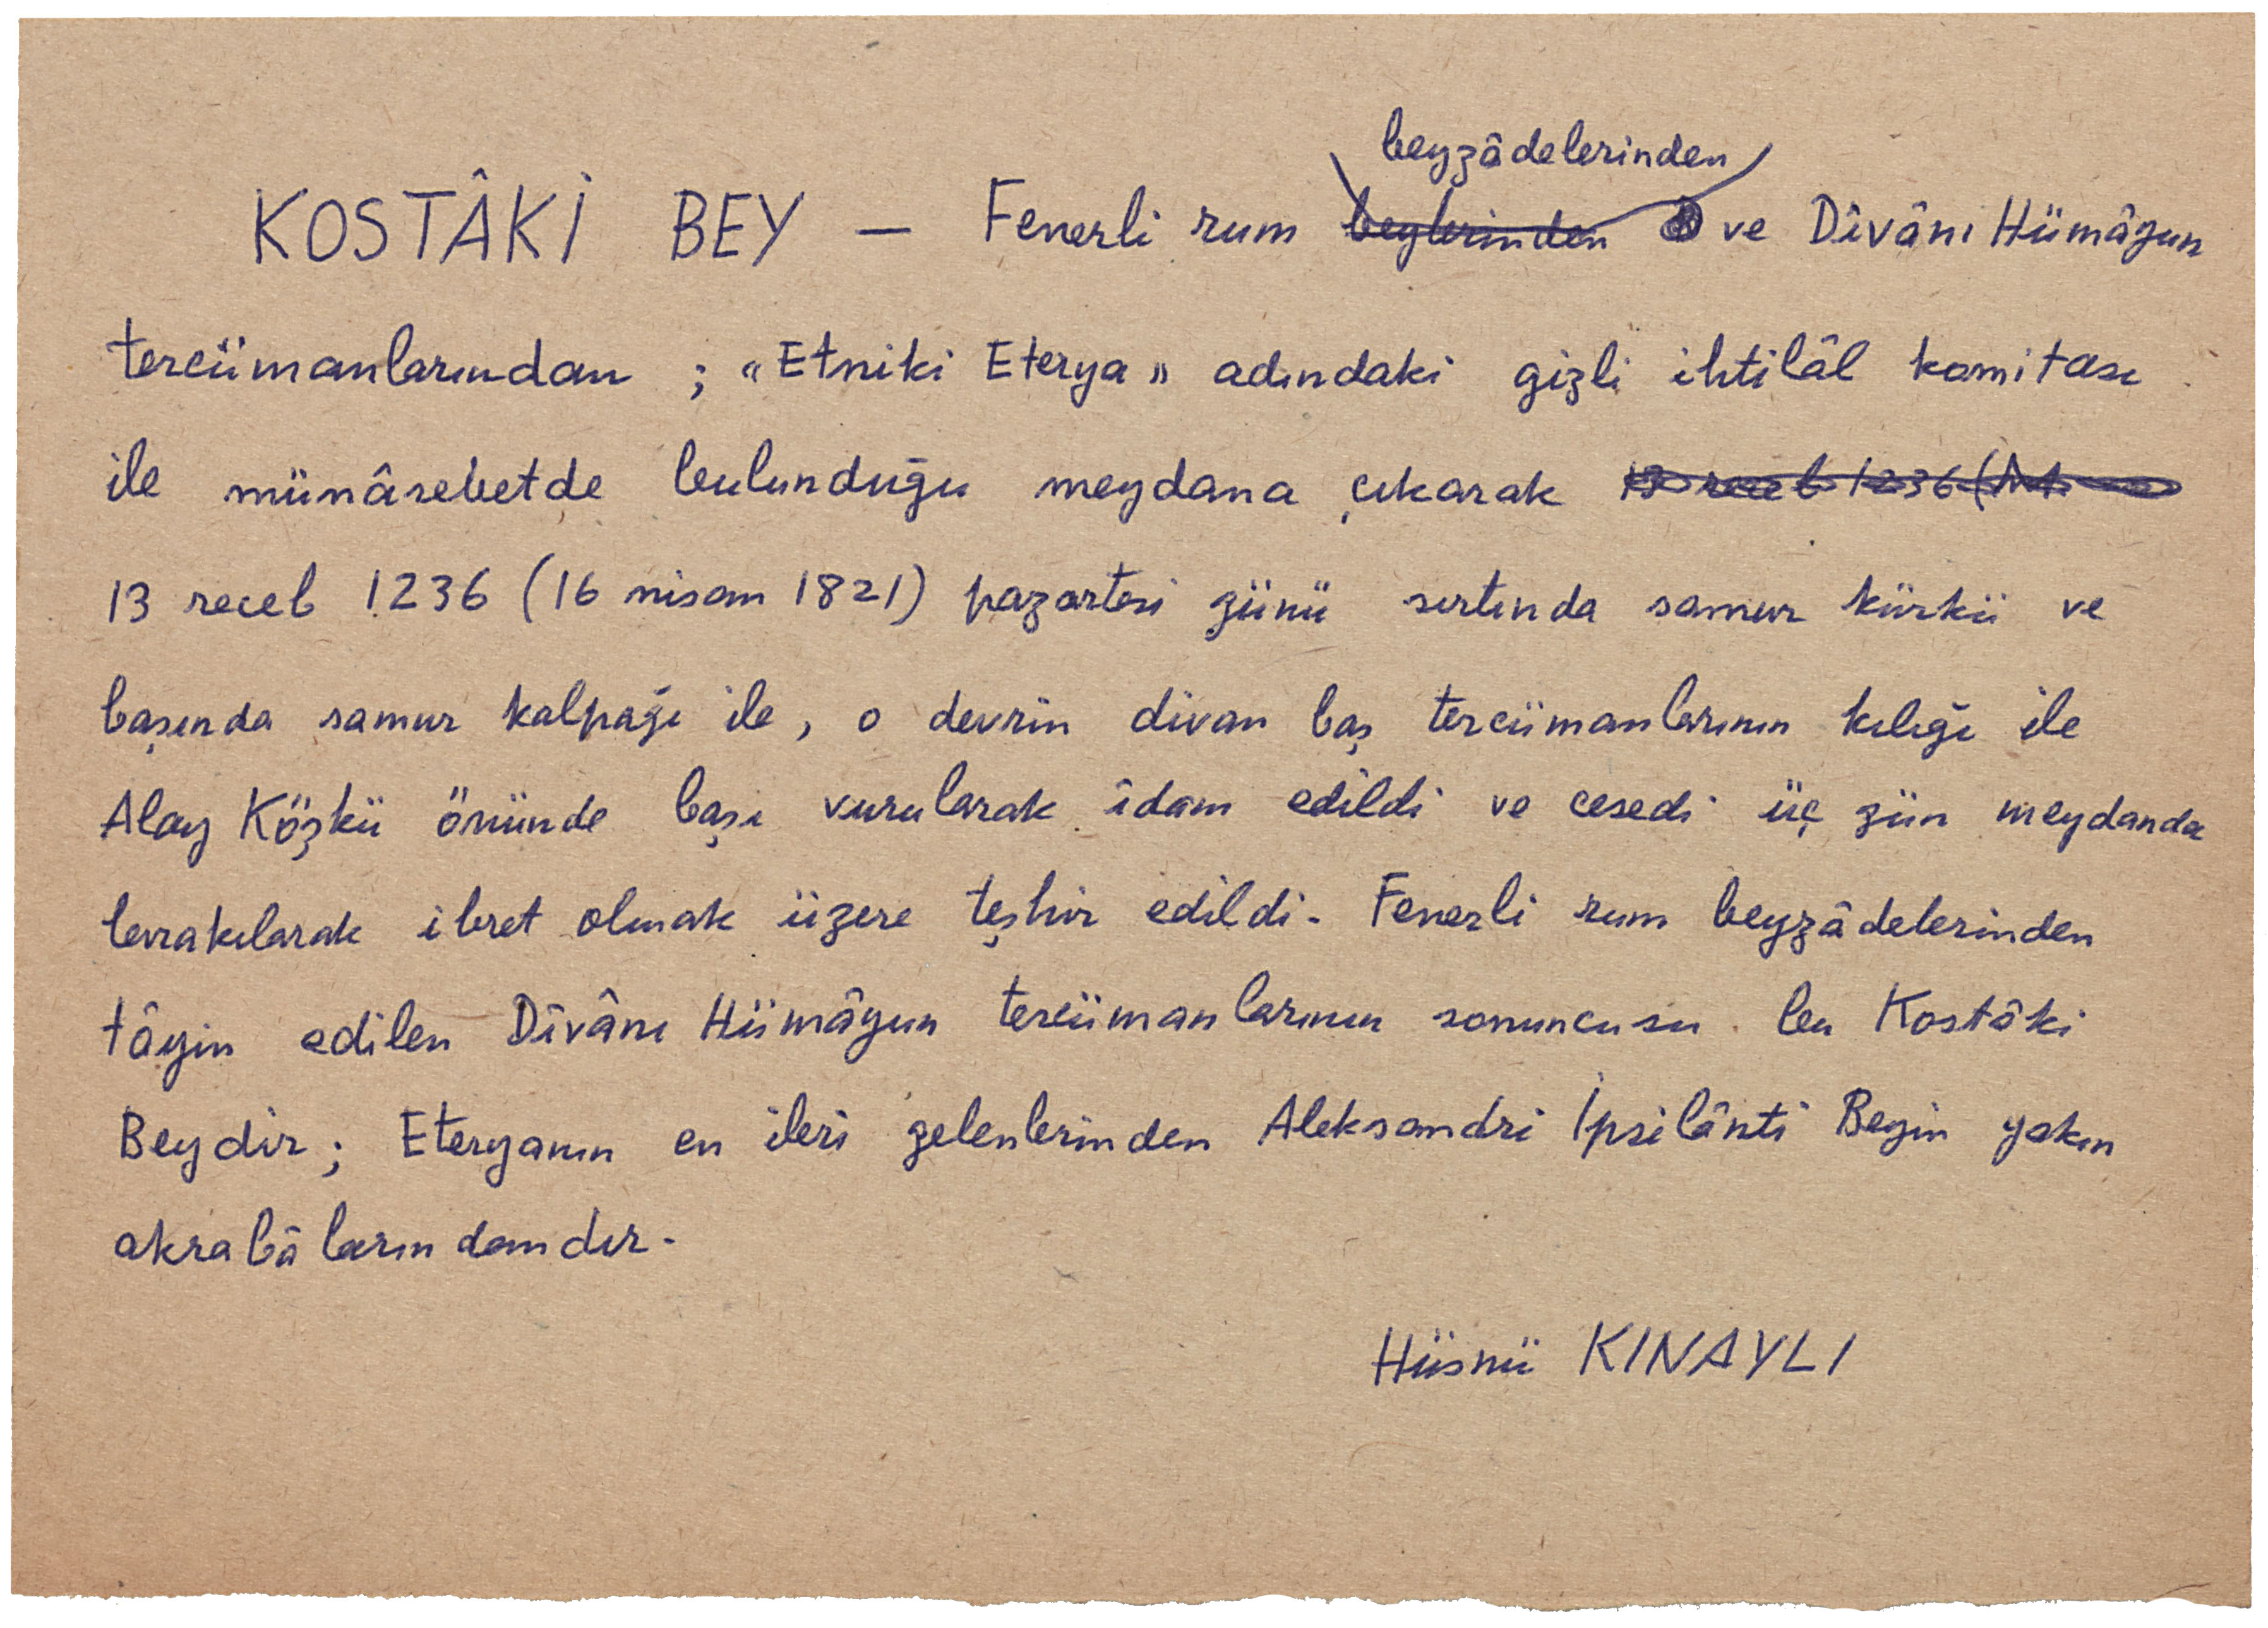 beyzâdelerinden
KOSTÂKİ BEY — Fenerli rum beylerinden ve Dîvânı Hümâyun
tercümanlarından ; "Etniki Eterya" adındaki gizli ihtilâl komitası
ile münâsebetde bulunduğu meydana çıkarak 13 receb 1236 (
13 receb 1236 (16 nisan 1821) pazartesi günü sırtında samur kürkü ve
başında samur kalpağı ile, o devrin divan baş tercümanlarının kılığı ile
Alay Köşkü önünde başı vurularak îdam edildi ve cesedi üç gün meydanda
bırakılarak ibret olmak üzere teşhir edildi. Fenerli rum beyzâdelerinden
tâyin edilen Dîvânı Hümâyun tercümanlarının sonuncusu bu Kostâki
Beydir ; Eteryanın en ileri gelenlerinden Aleksandri İpsilânti Beyin yakın
akrabâlarındandır.
Hüsnü KINAYLI